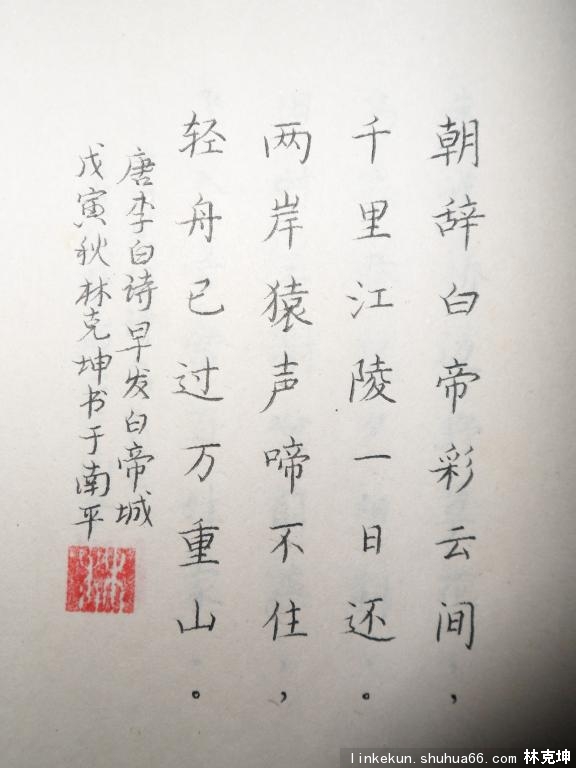 朝辞白帝彩云间，
千里江陵一日还。
两岸猿声啼不住，
轻舟已过万重山。
唐李白诗早发白帝城
戊寅秋林克坤书于南平
林
linkekun.shuhua66.com 林克坤